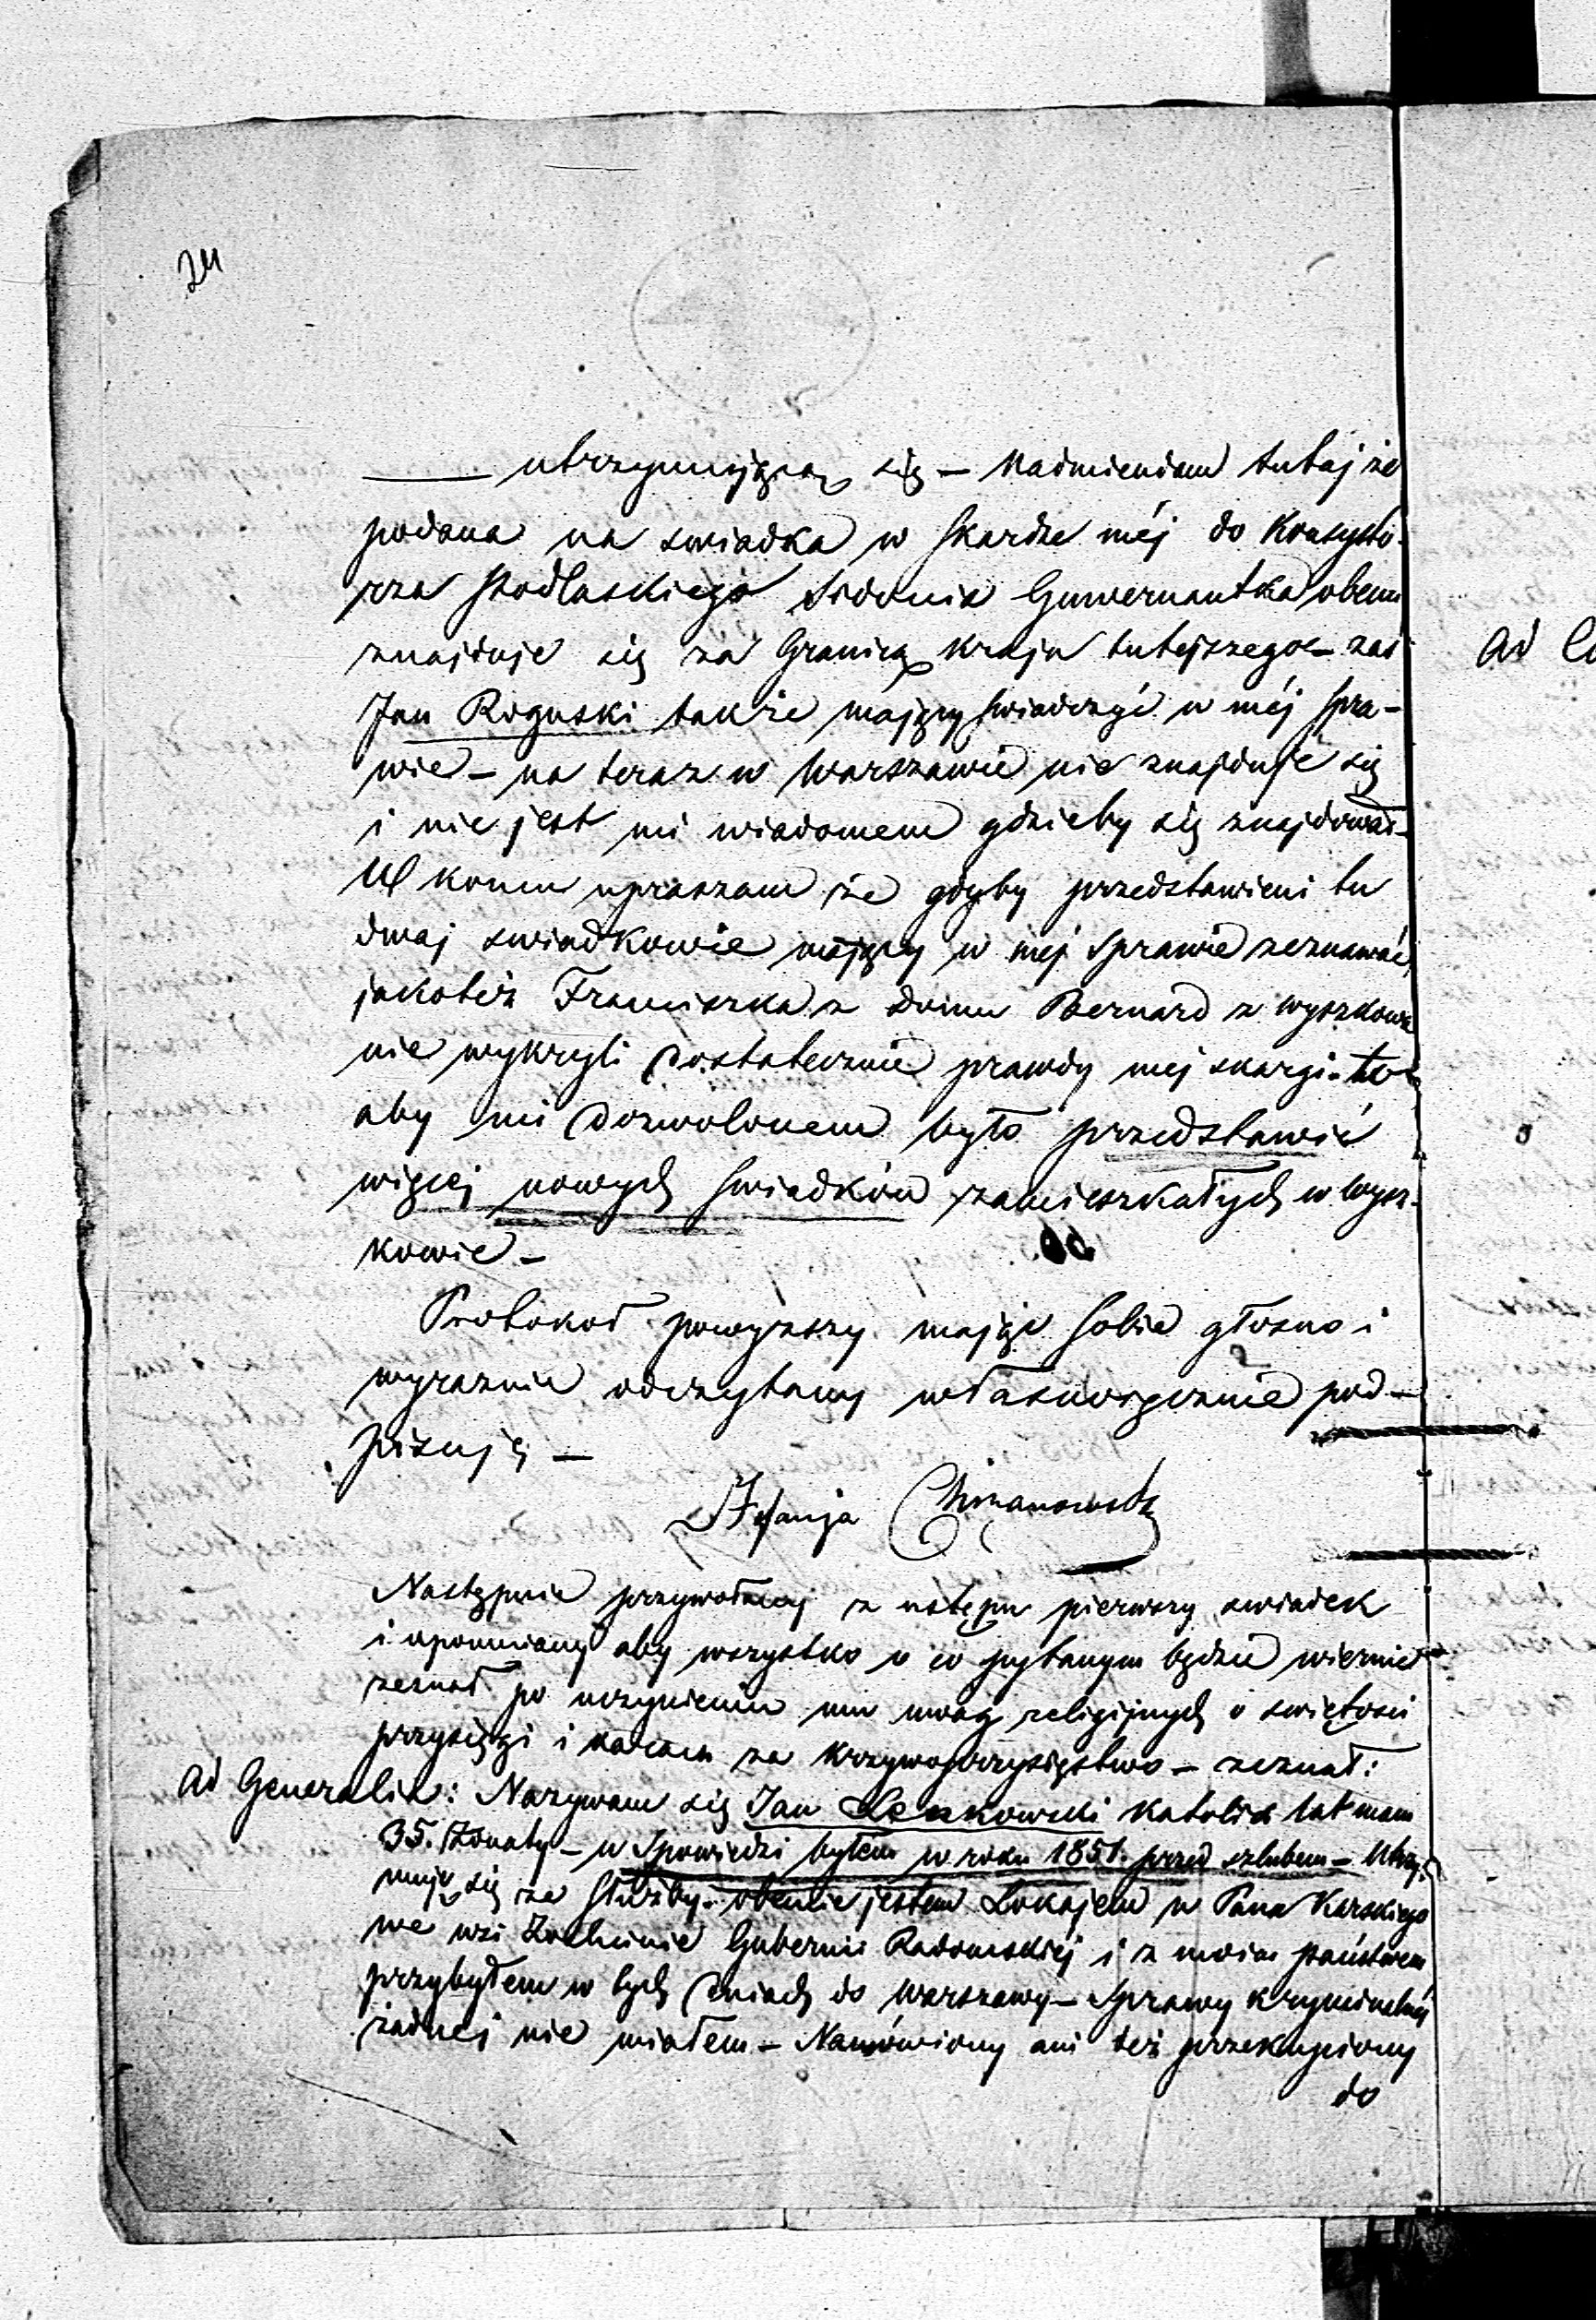 24
utrzymującą się – Nadmieniam tutaj że
podana na swiadka w skardze mej do Konsysto-
rza Podlaskiego Sidonia Guwernantka obecnie
znajduje się za Granicą kraju tutejszego – zaś
Jan Roguski także mający swiadczyć w mej spra-
wie – na teraz w Warszawie nie znajduje się
i nie jest mi wiadomem gdzieby się znajdował –
W koncu upraszam że gdyby przedstawieni tu
dwaj swiadkowie mający w mej sprawie zeznawać,
jakoteż Franciszka z domu Bernard z Wyszkowa
nie wykryli dostatecznie prawdy mej skargi – to
aby mi dozwolonem było przedstawić
więcej nowych swiadków zamieszkałych w Wysz-
kowie –
Protokoł powyższy mając sobie głosno i
wyraznie odczytany własnoręcznie pod-
pisuję –
Następnie przywołany z ustępu pierwszy swiadek
i upomniany aby wszystko o co pytanym będzie wiernie
zeznał po uczynieniu mu uwag religijnych o swiętosci
przysięgi i karach za krzywoprzysięstwo – zeznał:
Ad Generalia: Nazywam się Jan Leszkowski katolik lat mam
35. Żonaty – u Spowiedzi byłem w roku 1851. przed szlubem – Utrzy-
muję się ze służby – obecnie jestem Lokajem u Pana Karskiego
we wsi Gubernii Radomskiéj i z moim państwem
przybyłem w tych dniach do Warszawy – Sprawy kryminalnéj
żadnej nie miałem – Namówiony ani też przekupiony
do
Ad